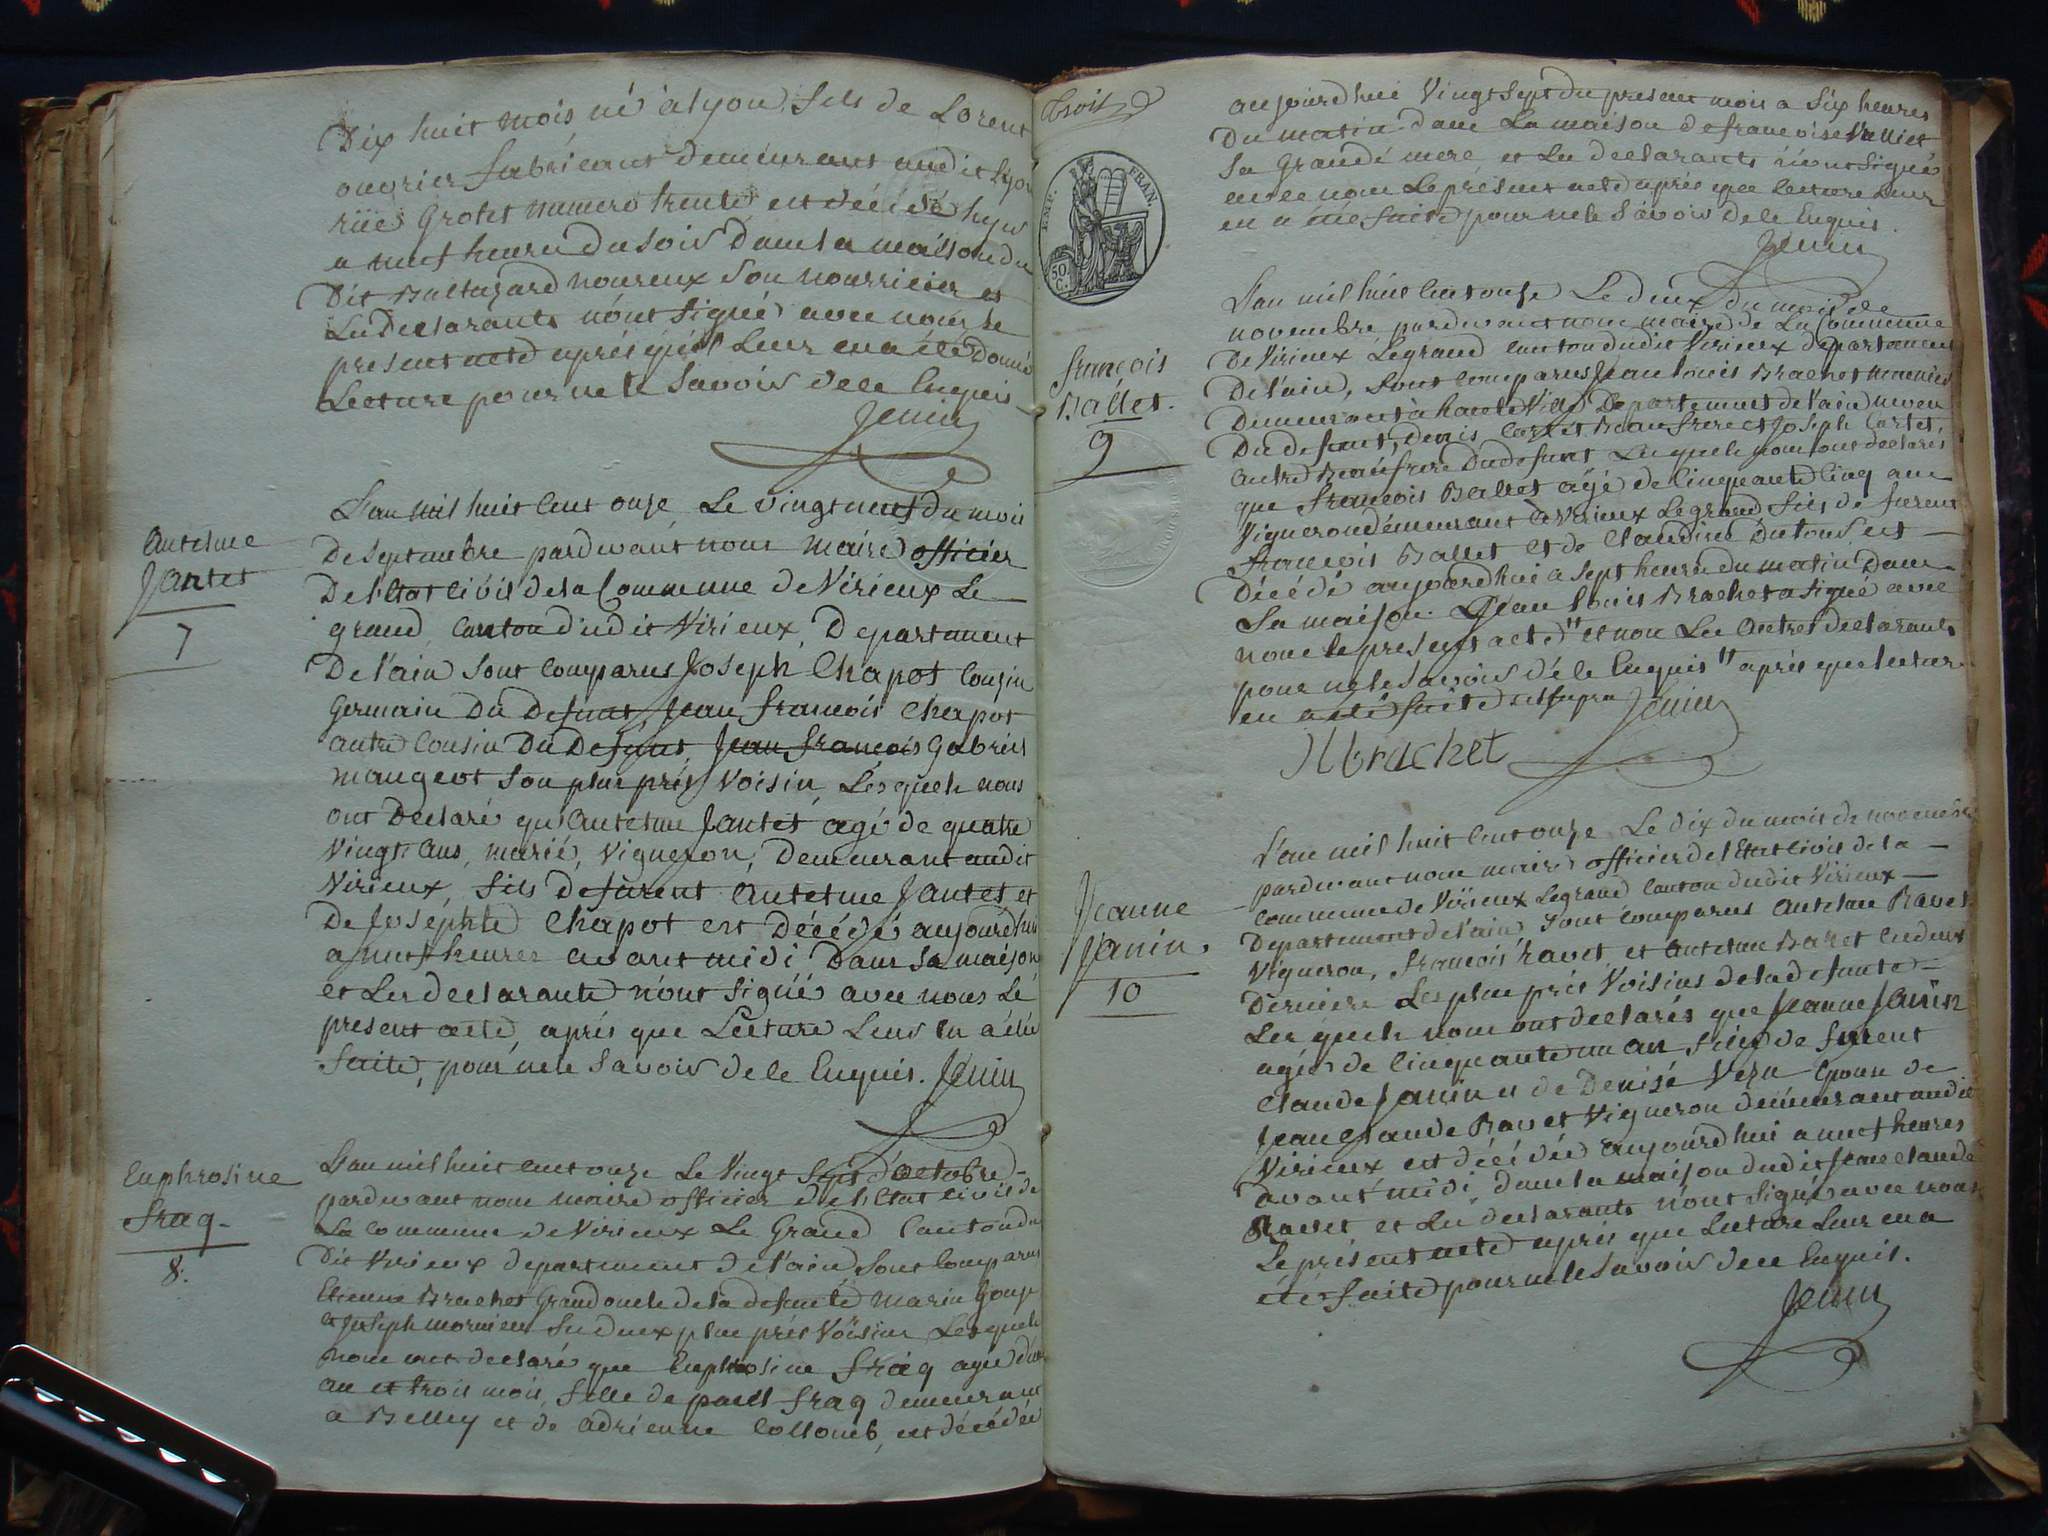 Dix huit mois né a lyon fils de Lorent
ouvrier fabricant demeurant audit Lyon
rüe Grolet numero trente est décédé hyer
a neuf heure du soir dans la maison du
Dit Baltazard noureux son nourricier et
Les declarants n'ont signé avec nous le
present acte après qu'il Leur en a été donné
Lecture pour ne le Savoir de ce Enquis
Jenin
Antelme
Jantet
7
L'an mil huit Cent onze Le vingt neuf du mois
De Septembre pardevant nous Maire officier
De l'Etat Civil de la Commune de Virieux Le
grand Canton dudit Virieux, Departement
De l'ain Sont Comparus Joseph Chapot Cousin
Germain Du Defunt, Jean françois Chapot
autre Cousin Du Defunt, Jean françois Gabriel
maugeot Son plus près Voisin, Lesquels nous
ont Declaré qu'Antelme Jantet agé de quatre
Vingt ans, marié, Vigneron, Demeurant audit
Virieux, fils defurent Antelme Jantet et
De Joséphte Chapot est Décédé aujourd'hui
a neuf heures avant midi Dans Sa maison
et Les declarants n'ont Signé avec nous Le
present acte, après que Lecture Leur en a été
faite, pour ne le Savoir de ce Enquis. Jenin
Euphrosine
fraq
8.
L'an mil huit cent onze Le Vingt Sept d'octobre
pardevant nous maire officier de l'Etat Civil de
La Commune de Virieux Le Grand Canton du
Dit Virieux departement de l'ain Sont Comparus
Etienne Brachet Grand oncle de la defunte Marin Gouje
et Joseph mornieu Ses deux plus près Voisins Lesquels
nous ont declaré que Euphrosine fraq agée d'un
an et trois mois, fille de paul fraq demeurant
a Belley et de adrienne Collomb, est décédée
Troit
EMP. FRAN.
50 C.
aujourd'hui Vingt Sept du present mois a Six heures
Du matin dans La maison de francoise Valliet
Sa Grande mere et Les declarants n'ont Signé
avec nous Le présent acte après que lecture Leur
en a été faite pour ne le Savoir de ce Enquis.
Jenin
françois
Ballet.
9
L'an mil huit Cent onze Le deux du mois de
novembre pardevant nous maire de La Commune
De Virieux Legrand Canton dudit Virieux departement
De l'ain, Sont Comparus Jean Louis Brachet
Demeurant à hauteville Departement de l'ain neveu
Du defunt, denis Cartet Beaufrere et Joseph Cartet,
autre Beaufrere Du defunt Lesquels nous ont declarés
que françois Ballet agé de Cinquante Cinq ans
Vigneron demeurant a Virieux Legrand fils de furent
françois Ballet et de Claudine Dutour, est
Décédé aujourd'hui a Sept heures du matin Dans
Sa maison. Jean Louis Brachet a Signé avec
nous le present acte " et non Les autres declarants
pour ne le Savoir de ce Enquis " après que lecture
en a été faite ut supra Jenin
Jl brachet
Jeanne
Janin.
10
L'an mil huit Cent onze Le dix du mois de novembre
pardevant nous maire officier de l'Etat Civil de la
Commune de Virieux Legrand Canton dudit Virieux
Departement de l'ain Sont Comparus Antelme Ravet
Vigneron, françois Ravet, et Antelme Baret
Derniere Les plus près Voisins de la defunte
Les quels nous ont declarés que Jeanne Janin
agée de Cinquante un an fille de furent
Claude Janin et de Denise Epouse de
Jean Claude Ravet Vigneron demeurant audit
Virieux est décédée aujourd'hui a neuf heures
avant midi dans la maison dudit Jean Claude
Ravet et Les declarants n'ont Signé avec nous
Le présent acte après que Lecture Leur en a
été faite pour ne le Savoir de ce Enquis.
Jenin